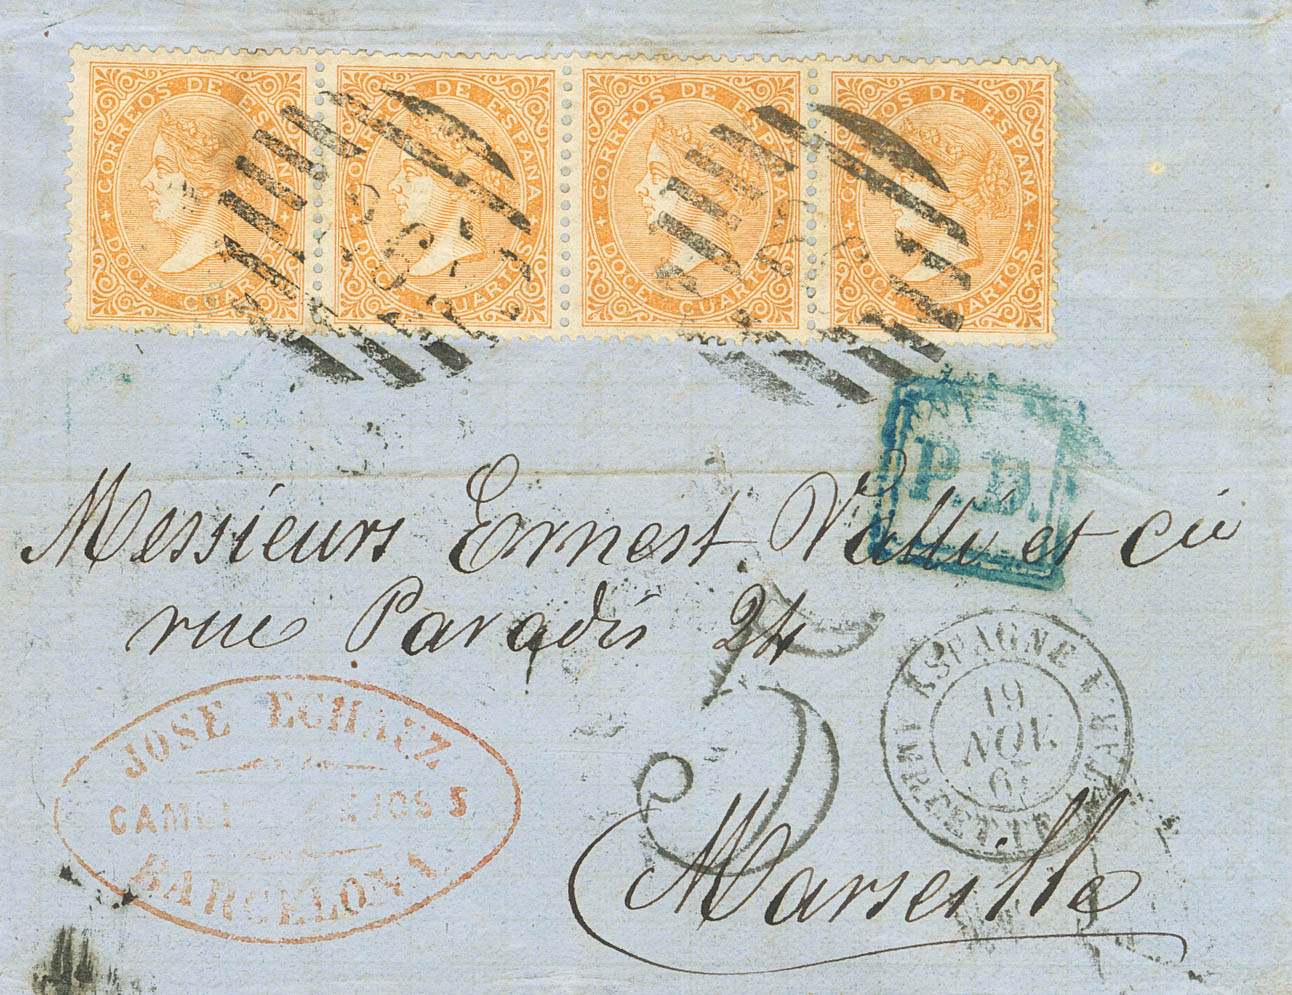 CORREOS DE ESPAÑA
DOCE CUARTOS
CORREOS DE ESPAÑA
DOCE CUARTOS
CORREOS DE ESPAÑA
DOCE CUARTOS
CORREOS DE ESPAÑA
DOCE CUARTOS
P.D.
Messieurs Ernest et cie
rue Paradis 24
5
ESPAGNE
19
NOV.
JOSE ECHAUZ
5
BARCELONA
Marseille